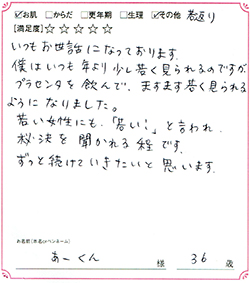 ☑お肌 □からだ □更年期 □生理 ☑その他 若返り
[満足度]☆☆☆☆☆
いつもお世話になっております。
僕はいつも年より少し若く見られるのですが、
プラセンタを飲んで、ますます若く見られる
ようになりました。
若い女性にも、「若い!」と言われ、
秘決を聞かれる程です。
ずっと続けていきたいと思います。
お名前(本名orペンネーム)
あーくん 様 36 歳